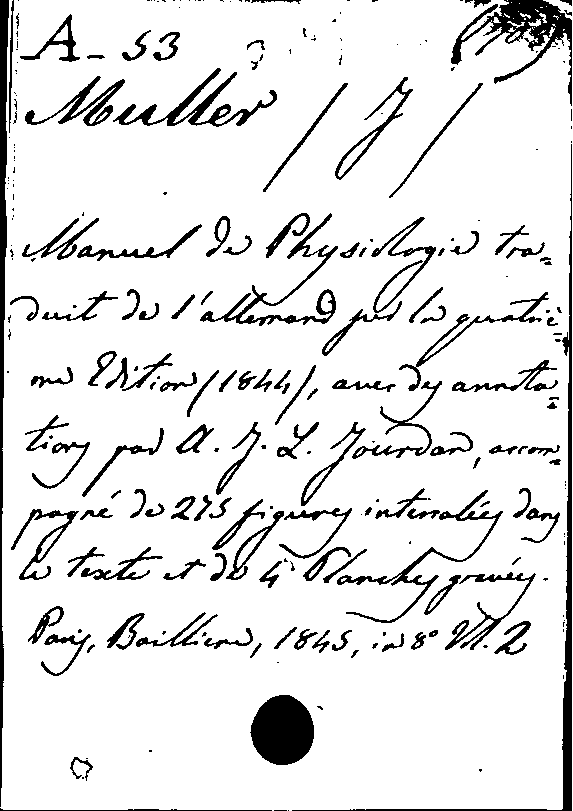 A-53
Muller (J)
Manuel de Physiologie tra=
duit de l'allemand sur la quatriè=
me Edition (1844), avec des annota=
tions par A. J. L. Jourdan, accom=
pagné de 275 figures intercalées dans
le texte et de 4 Planches gravées.
Paris, Bailliere, 1845, in 8° Vol. 2